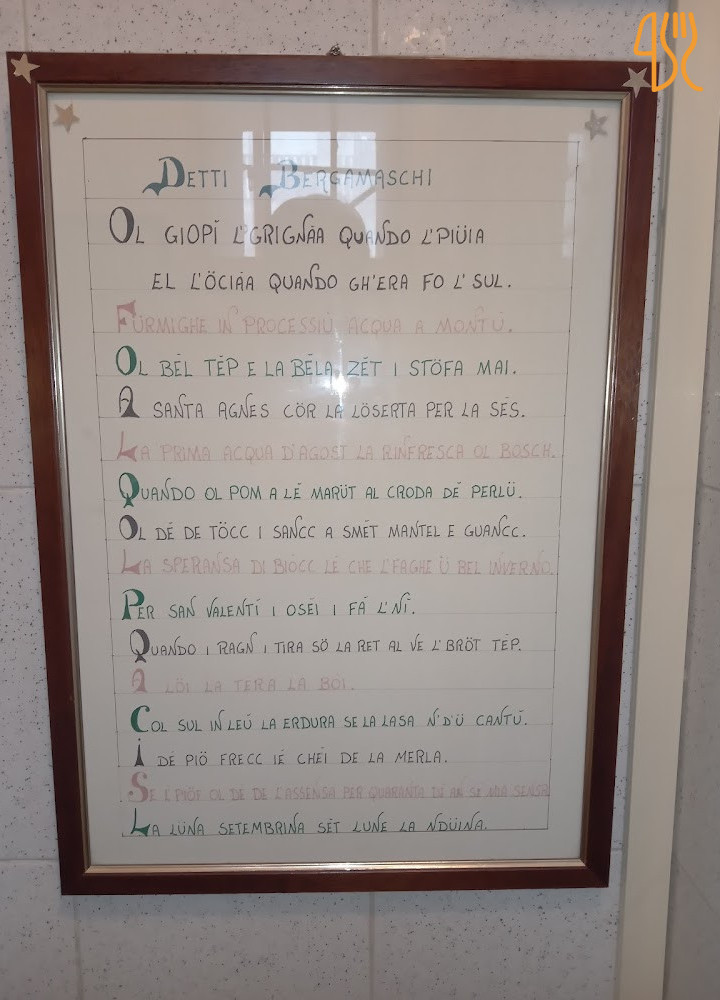 DETTI BERGAMASCHI
OL GIOPÍ L'GRIGNÁA QUANDO L'PIÜIA
EL L'ÖCIÁA QUANDO GH'ERA FO L'SUL.
FURMIGHE IN PROCESSIÙ ACQUA A MONTÙ.
OL BÉL TÉP E LA BÉLA ZÉT I STÖFA MAI.
A SANTA AGNES CÖR LA LÖSERTA PER LA SÉS.
LA PRIMA ACQUA D'AGOST LA RINFRESCA OL BOSCH.
QUANDO OL POM A LÉ MARÜT AL CRODA DÉ PERLÜ.
OL DÉ DE TÖCC I SANCC A SMÉT MANTEL E GUANCC.
LA SPERANSA DI BIÒCC LÉ CHE L'FAGHE Ü BEL INVERNO.
PER SAN VALENTÍ I OSÉI I FÁ L'NÍ.
QUANDO I RAGN I TIRA SÖ LA RET AL VE L'BRÖT TÉP.
A LÖI LA TERA LA BÓI.
COL SUL IN LEÙ LA ERDURA SE LA LASA N'D'Ü CANTÙ.
I DÉ PIÖ FRECC IÉ CHÉI DE LA MERLA.
SE L'PIÖF OL DÉ DE L'ASSENSA PER QUARANTA DÉ AN SE NDÁ SENSA
LA LÜNA SETEMBRINA SÉT LUNE LA NDÜINA.